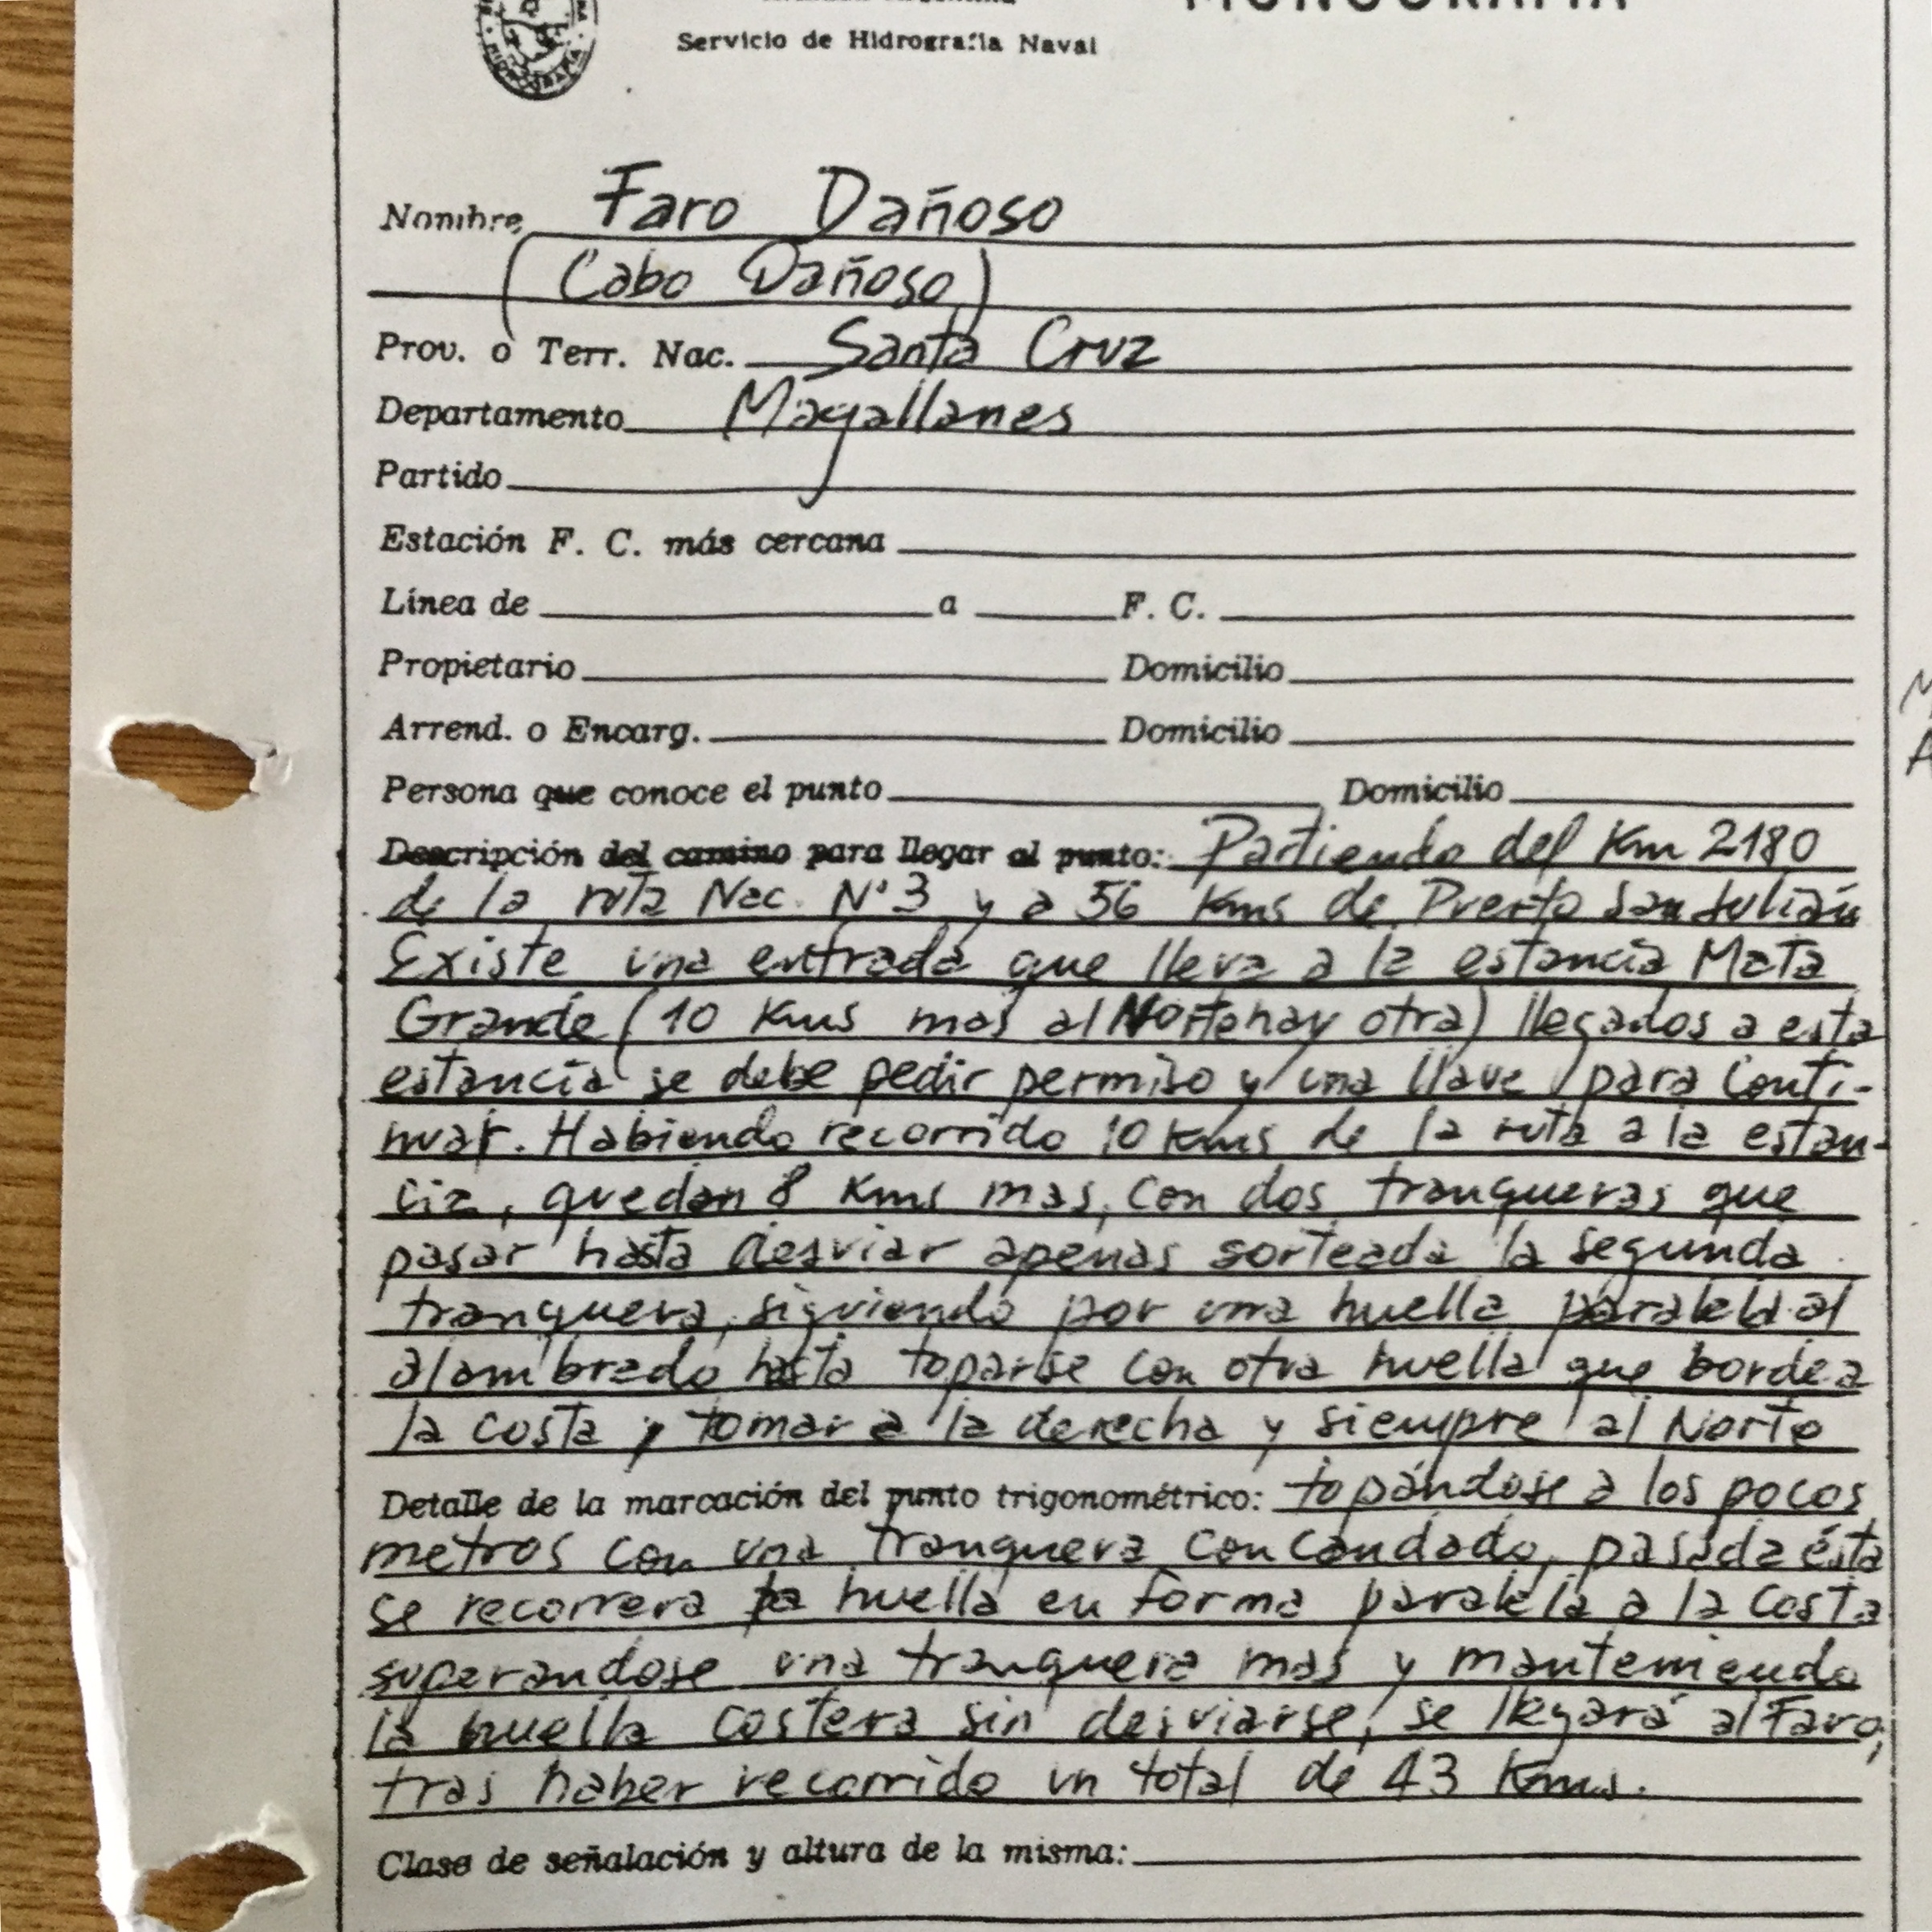 MONOGRAFIA
Servicio de Hidrografía Naval
HIDROGRAFIA
Nombre Faro Dañoso
(Cabo Dañoso)
Prov. o Terr. Nac. Santa Cruz
Departamento Magallanes
Partido
Estación F. C. más cercana
Línea de a F. C.
Propietario Domicilio
Arrend. o Encarg. Domicilio
Persona que conoce el punto Domicilio
Descripción del camino para llegar al punto: Partiendo del Km 2180
de la ruta Nac. N°3 y a 56 Kms de Puerto San Julián
Existe una entrada que lleva a la estancia Mata
Grande (10 Kms mas al Norte hay otra) llegados a esta
estancia se debe pedir permiso y una llave para conti-
nuar. Habiendo recorrido 10 Kms de la ruta a la estan-
cia, quedan 8 Kms mas, con dos tranqueras que
pasar hasta desviar apenas sorteada la segunda
tranquera, siguiendo por una huella paralela al
alambrado hasta toparse con otra huella que bordea
la costa y tomar a la derecha y siempre al Norte
Detalle de la marcación del punto trigonométrico: topándose a los pocos
metros con una tranquera con candado, pasada ésta
se recorrera la huella en forma paralela a la costa
superandose una tranquera mas y manteniendo
la huella costera sin desviarse, se llegará al Faro,
tras haber recorrido un total de 43 Kms.
Clase de señalación y altura de la misma: